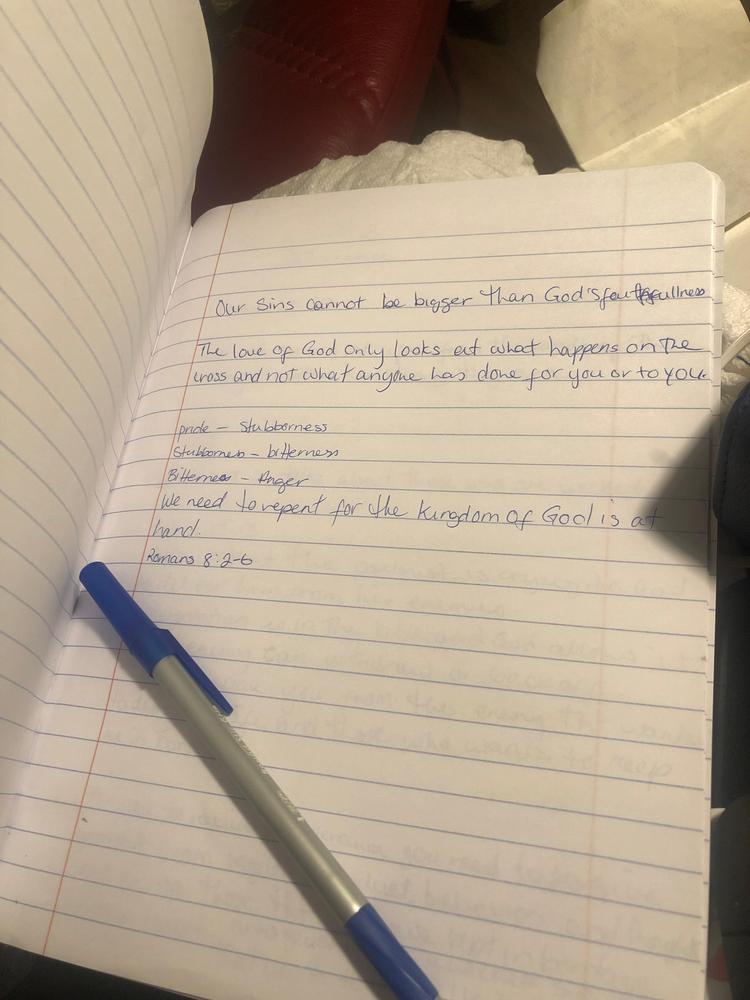 Our Sins cannot be bigger than God's
The love of God only looks at what happens on the
cross and not what anyone has done for you or to you.
pride – Stubborness
Stubbornes – bitterness
Bitterness – Anger
We need to repent for the kingdom of God is at
hand.
Romans 8:2-6